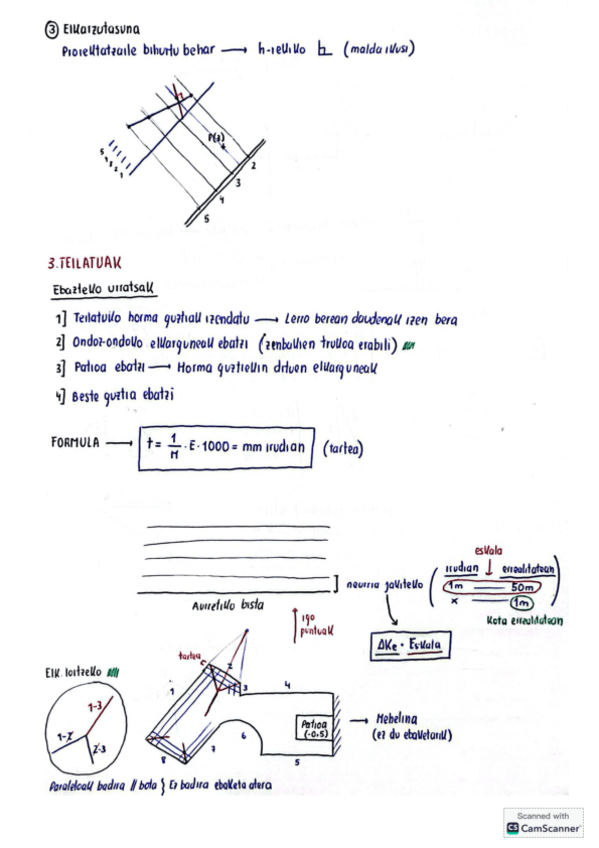 ③ Elkarzutasuna
Proiektatzaile bihurtu behar → h-rekiko ⊾ (malda ikusi)
P(3)
5 4 3 2 1
2
3
4
5
3. TEILATUAK
Ebazteko urratsak
1] Teilatuko horma guztiak izendatu → Lerro berean daudenak izen bera
2] Ondoz-ondoko elkarguneak ebatzi (zenbakien trukoa erabili)
3] Patioa ebatzi → Horma guztiekin dituen elkarguneak
4] Beste guztia ebatzi
FORMULA → t = 1/M · E · 1000 = mm irudian (tartea)
eskala
irudian errealitatean
1m 50m
x 1m
Kota errealitatean
neurria jakiteko
Aurretiko bista
igo puntuak
ΔKe · Eskala
Elk. lortzeko
1-3
1-2
2-3
tartea
C
1
2
3
4
5
6
7
8
Patioa
(-0.5)
→ Mehelina
(ez du ebaketarik)
Paraleloak badira // bota } Ez badira ebaketa atera
Scanned with
CS CamScanner